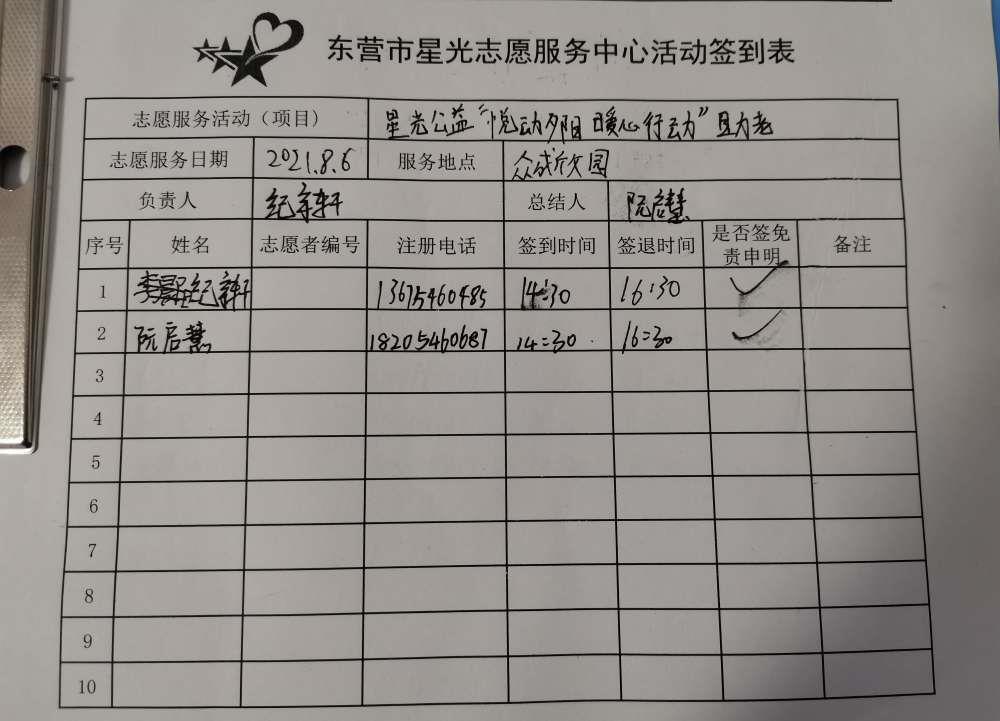 东营市星光志愿服务中心活动签到表
志愿服务活动（项目） 星光公益“悦动夕阳 暖心行动”助老
志愿服务日期 2021.8.6 服务地点 众成 文园
负责人 纪 轩 总结人 阮启慧
序号 姓名 志愿者编号 注册电话 签到时间 签退时间 是否签免责申明 备注
1 纪 轩 13675460485 14:30 16:30 ✓
2 阮启慧 18205460687 14:30 16:30 ✓
3
4
5
6
7
8
9
10